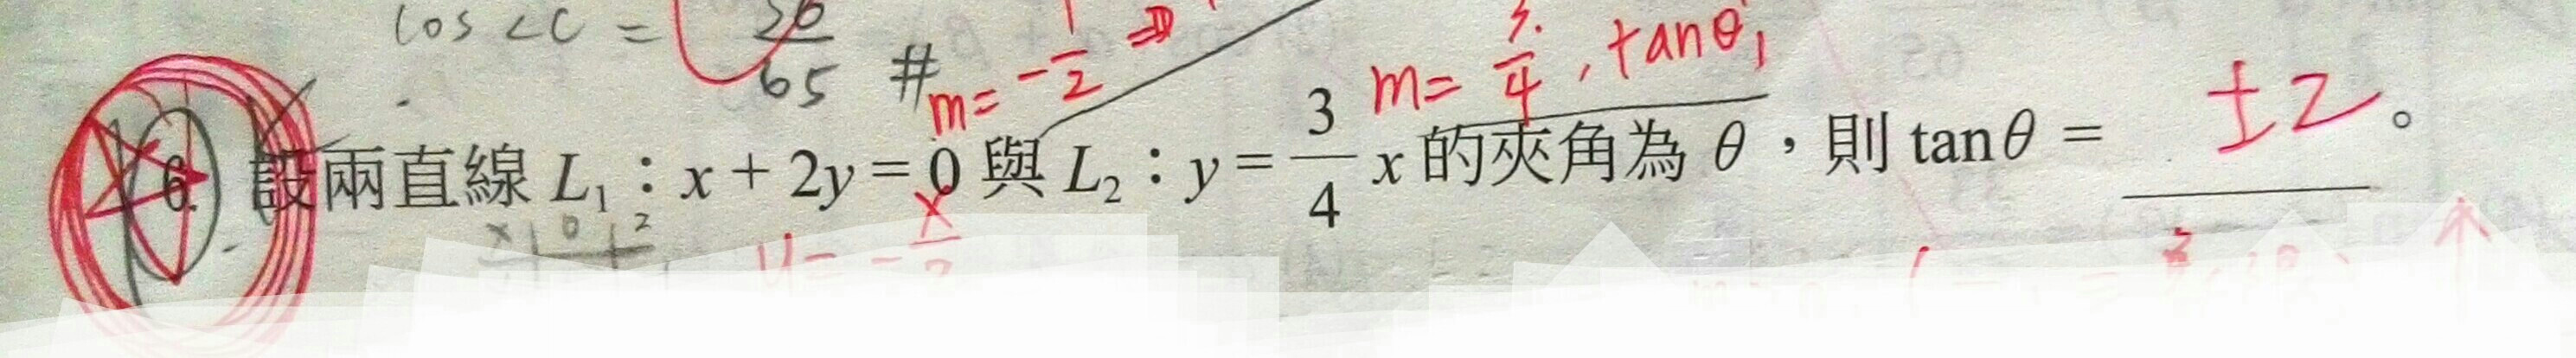 cos∠C = 36/65 #
m = -1/2 ⇒ m = 3/4 , tanθ₁
6. 設兩直線 L₁:x + 2y = 0 與 L₂:y = 3/4 x 的夾角為 θ,則 tanθ = ±2 。
x 0 2
y = -x/2